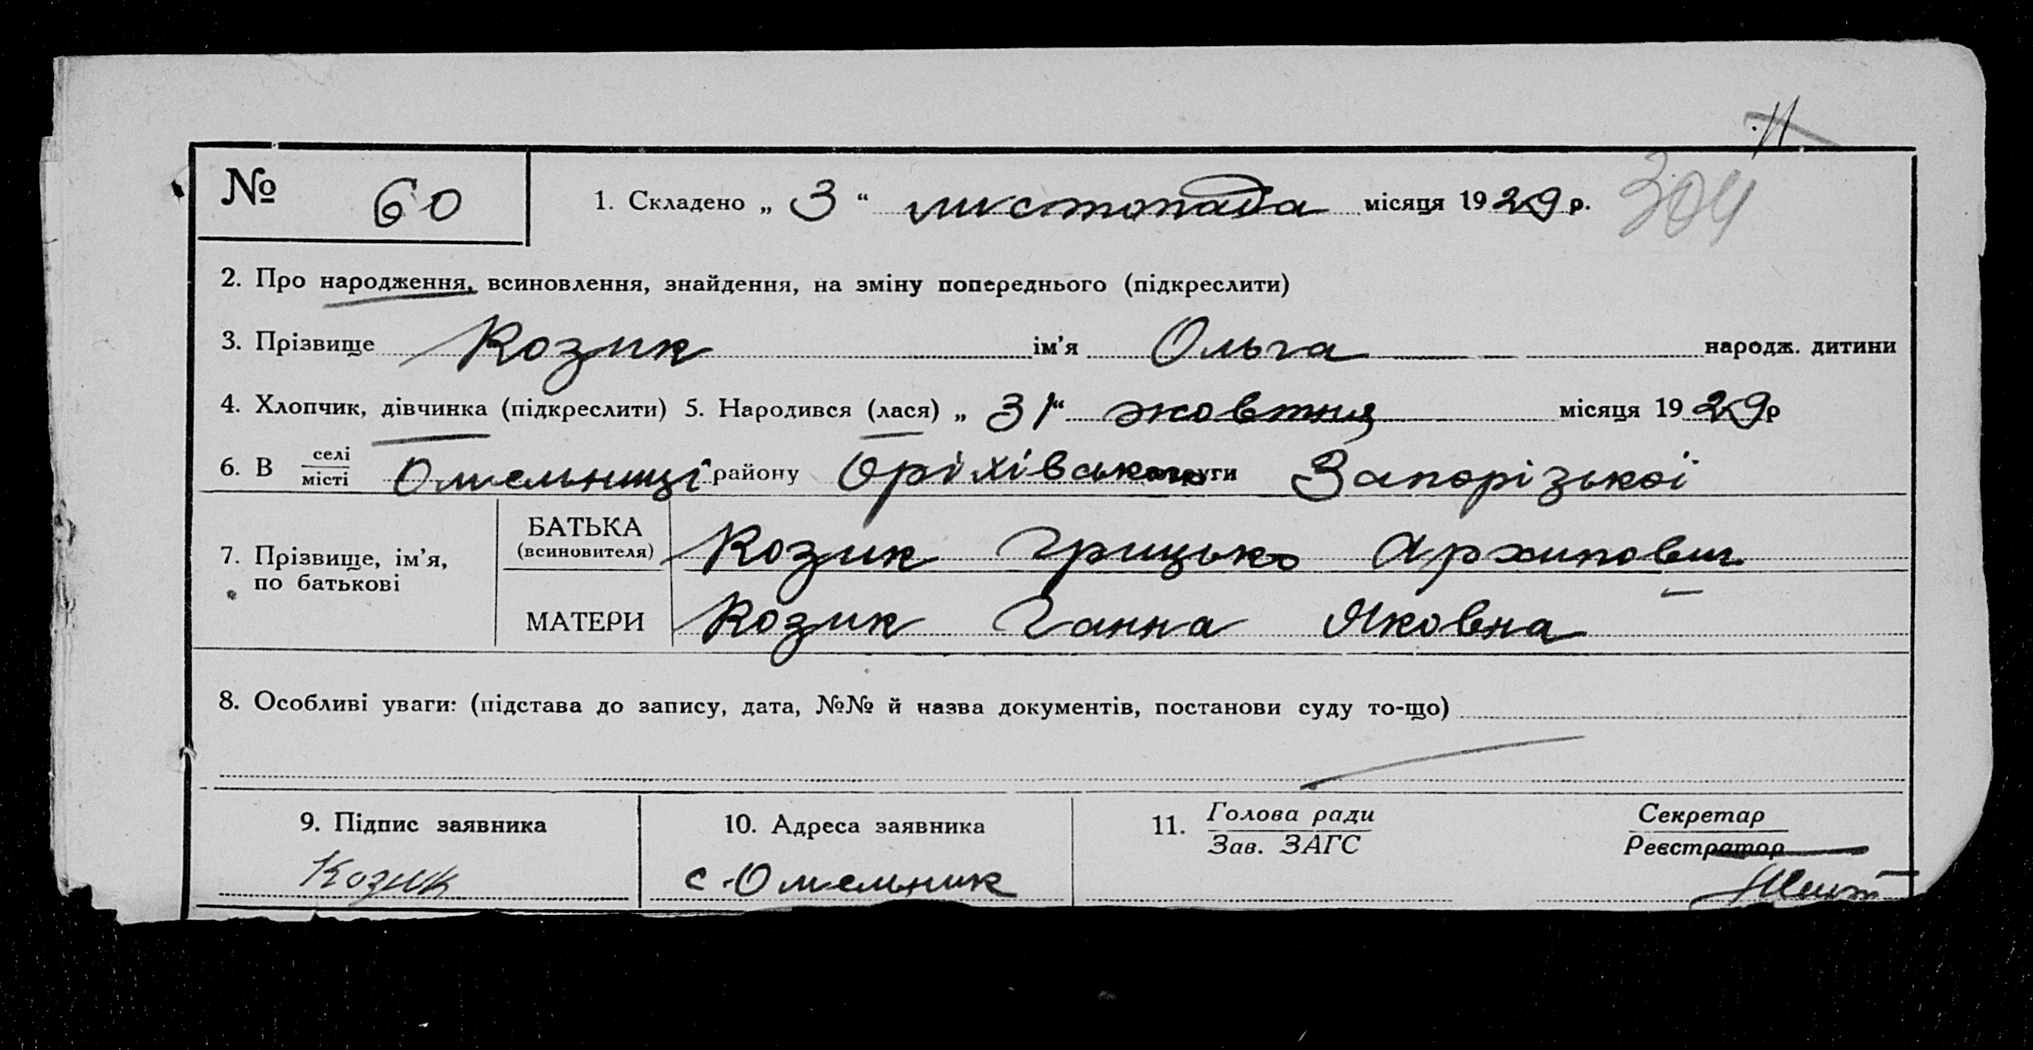 № 60 1. Складено „ 3 “ листопада місяця 1929 р. 304
2. Про народження, всиновлення, знайдення, на зміну попереднього (підкреслити)
3. Прізвище Козик ім'я Ольга народж. дитини
4. Хлопчик, дівчинка (підкреслити) 5. Народився (лася) „ 31 “ жовтня місяця 1929 р
6. В селі місті Омельниці району Оріхівського округи Запорізької
7. Прізвище, ім'я, по батькові
БАТЬКА (всиновителя) Козик Грицько Архипович
МАТЕРИ Козик Ганна Яковна
8. Особливі уваги: (підстава до запису, дата, №№ й назва документів, постанови суду то-що)
9. Підпис заявника 10. Адреса заявника 11. Голова ради Секретар
Зав. ЗАГС Реєстратор
Козик с. Омельник